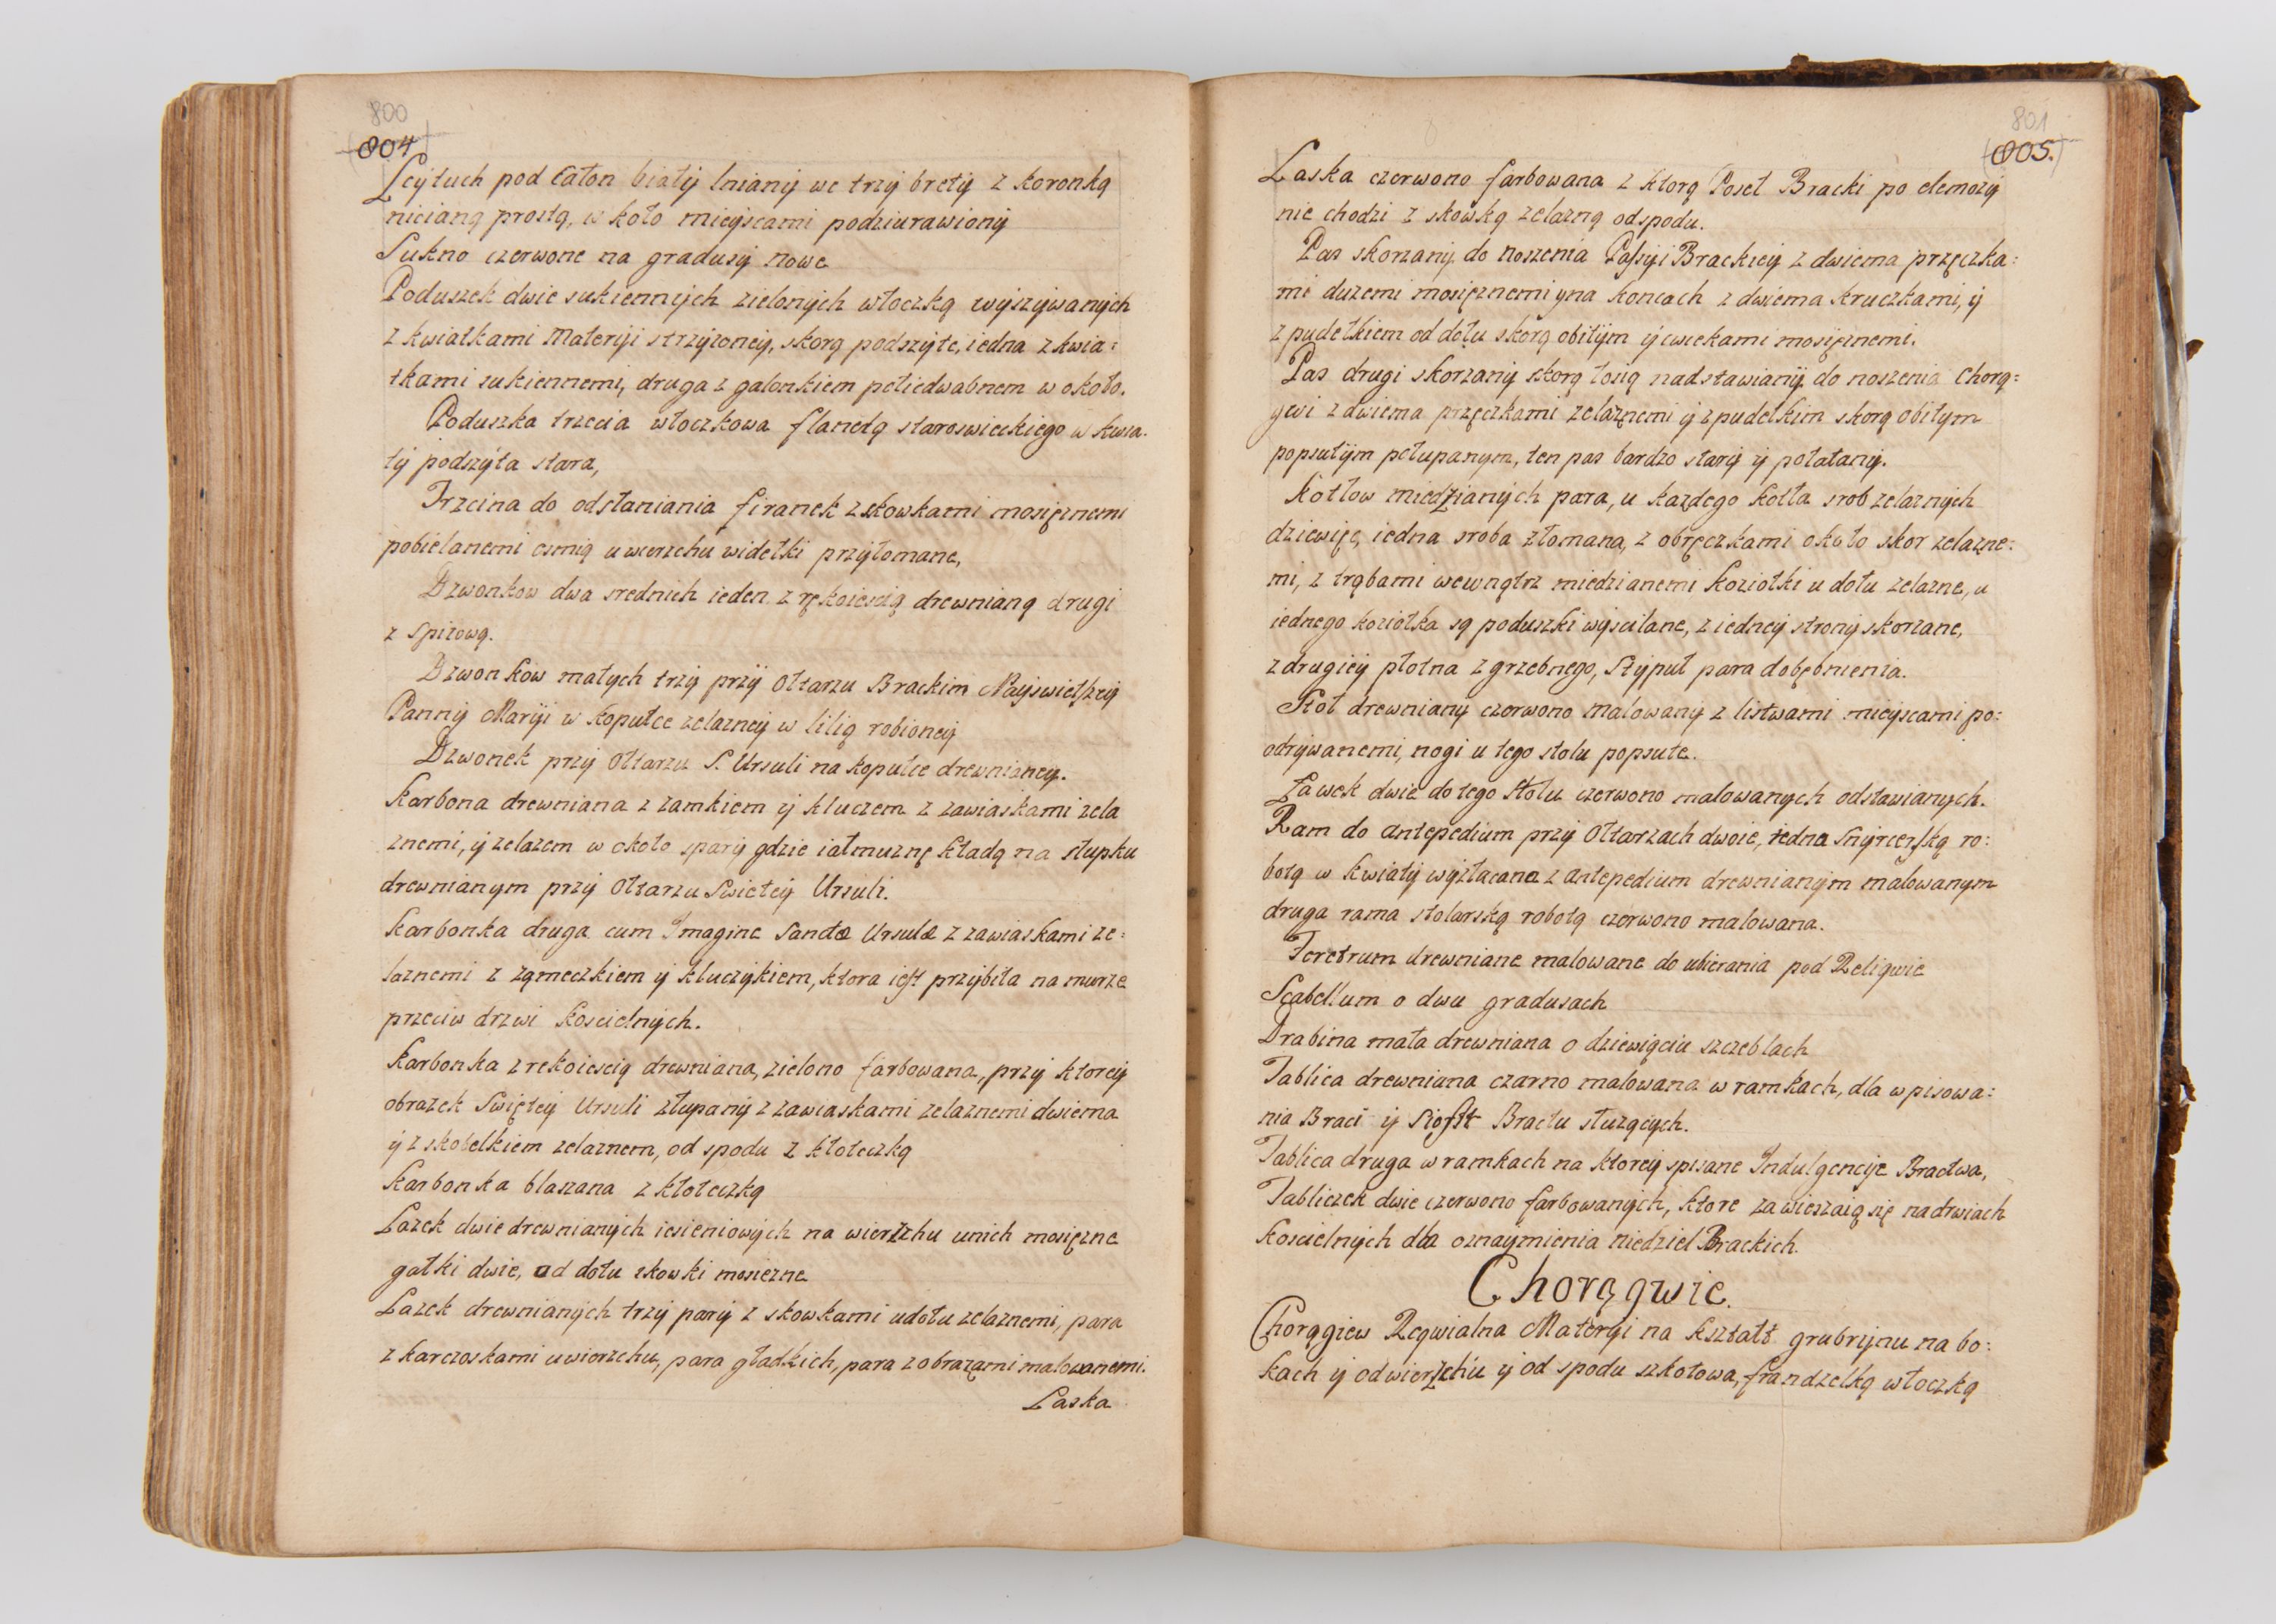 800
804
Leÿtuch pod Całon białÿ lnianÿ we trzÿ bretÿ z koronką
nicianą prostą, w koło mieÿscami podziurawionÿ
Sukno czerwone na gradusÿ nowe
Poduszek dwie sukiennÿch zielonÿch włoczką wÿszÿwanÿch
z kwiatkami Materÿi strzÿzoneÿ, skorą podszÿte, iedna z kwia:
tkami sukiennemi, druga z galonkiem połiedwabnem w około.
Poduszka trzecia włoczkowa flanelą staroswieckiego w kwia.
tÿ podszÿta stara,
Trzcina do odsłaniania firanek z skowkami mosięznemi
pobielanemi csmią u wierzchu widełki przÿłomane,
Dzwonkow dwa srednich ieden z rękoiescią drewnianą drugi
z spizową.
Dzwonkow małych trzÿ przÿ Ołtarzu Brackim Nayswietszeÿ
Pannÿ Marÿi w kopułce zelazneÿ w lilią robioneÿ
Dzwonek przÿ Ołtarzu S. Ursuli na kopułce drewnianeÿ.
Karbona drewniana z zamkiem ÿ kluczem z zawiaskami zela
znemi, ÿ zelazem w około sparÿ gdzie iałmuznę kładą na słupku
drewnianym przÿ Ołtarzu Swieteÿ Ursuli.
Karbonka druga cum Imagine Sanctæ Ursulæ z zawiaskami ze:
laznemi z ząmeczkiem ÿ kluczÿkiem, ktora iest przÿbita na murze
przeciw drzwi koscielnÿch.
Karbonka z rekoiescią drewniana, zielono farbowana, przÿ ktoreÿ
obrazek Swięteÿ Ursuli złupanÿ z zawiaskami zelaznemi dwiema
ÿ z skobelkiem zelaznem, od spodu z kłoteczką
Karbonka blaszana z kłoteczką
Lazek dwie drewnianÿch iesieniowÿch na wierzchu unich mosięzne
gałki dwie, od dołu skowki mosiezne
Lazek drewnianÿch trzÿ parÿ z skowkami udołu zelaznemi, para
z karczoskami uwierzchu, para gładkich, para z obrazami malowanemi.
Laska
801
805.
Laska czerwono farbowana z ktorą Poseł Bracki po elemozÿ
nie chodzi z skowką zelazną odspodu.
Pas skorzanÿ do noszenia Passyi Brackieÿ z dwiema przęczka:
mi duzemi mosięznemi yna koncach z dwiema kruczkami, ÿ
z pudełkiem od dołu skorą obitÿm ÿ cwiekami mosięznemi.
Pas drugi skorzanÿ skorą łosią nadstawianÿ do noszenia Chorą:
gwi z dwiema przęczkami zelaznemi ÿ z pudełkim skorą obitym
popsutÿm połupanym, ten pas bardzo starÿ ÿ połatanÿ.
Kotłow miedzianÿch para, u kazdego kotła srob zelaznÿch
dziewięc, iedna sroba złomana, z obręczkami około skor zelazne:
mi, z trąbami wewnątrz miedzianemi koziołki u dołu zelazne, u
iednego koziołka są poduszki wÿscilane, z iedneÿ stronÿ skorzane,
z drugieÿ płotna zgrzebnego, Stÿpuł para dobębnienia.
Stoł drewnianÿ czerwono malowanÿ z listwami mieÿscami po:
odrÿwanemi, nogi u tego stolu popsute.
Ławek dwie do tego Stołu czerwono malowanych odstawianÿch.
Ram do antepedium przÿ Ołtarzach dwoie, iedna Snÿrcerską ro:
botą w kwiatÿ wÿzłacana z antepedium drewnianÿm malowanym
druga rama stolarską robotą czerwono malowana.
Feretrum drewniane malowane do ubierania pod Religwie
Scabellum o dwu gradusach
Drabina mała drewniana o dziewięciu szczeblach
Tablica drewniana czarno malowana w ramkach, dla wpisowa:
nia Braci ÿ Siostt Bractu słuzącÿch.
Tablica druga w ramkach na ktoreÿ spisane Indulgencÿe Bractwa,
Tabliczek dwie czerwono farbowanÿch, ktore zawieszaią się nadrwiach
koscielnÿch dla oznaÿmienia niedziel Brackich.
Chorągwie.
Chorągiew Reqwialna Materÿi na kształt grubrÿnu na bo:
kach ÿ odwierzchu ÿ od spodu szkotowa, frandzelką włoczką